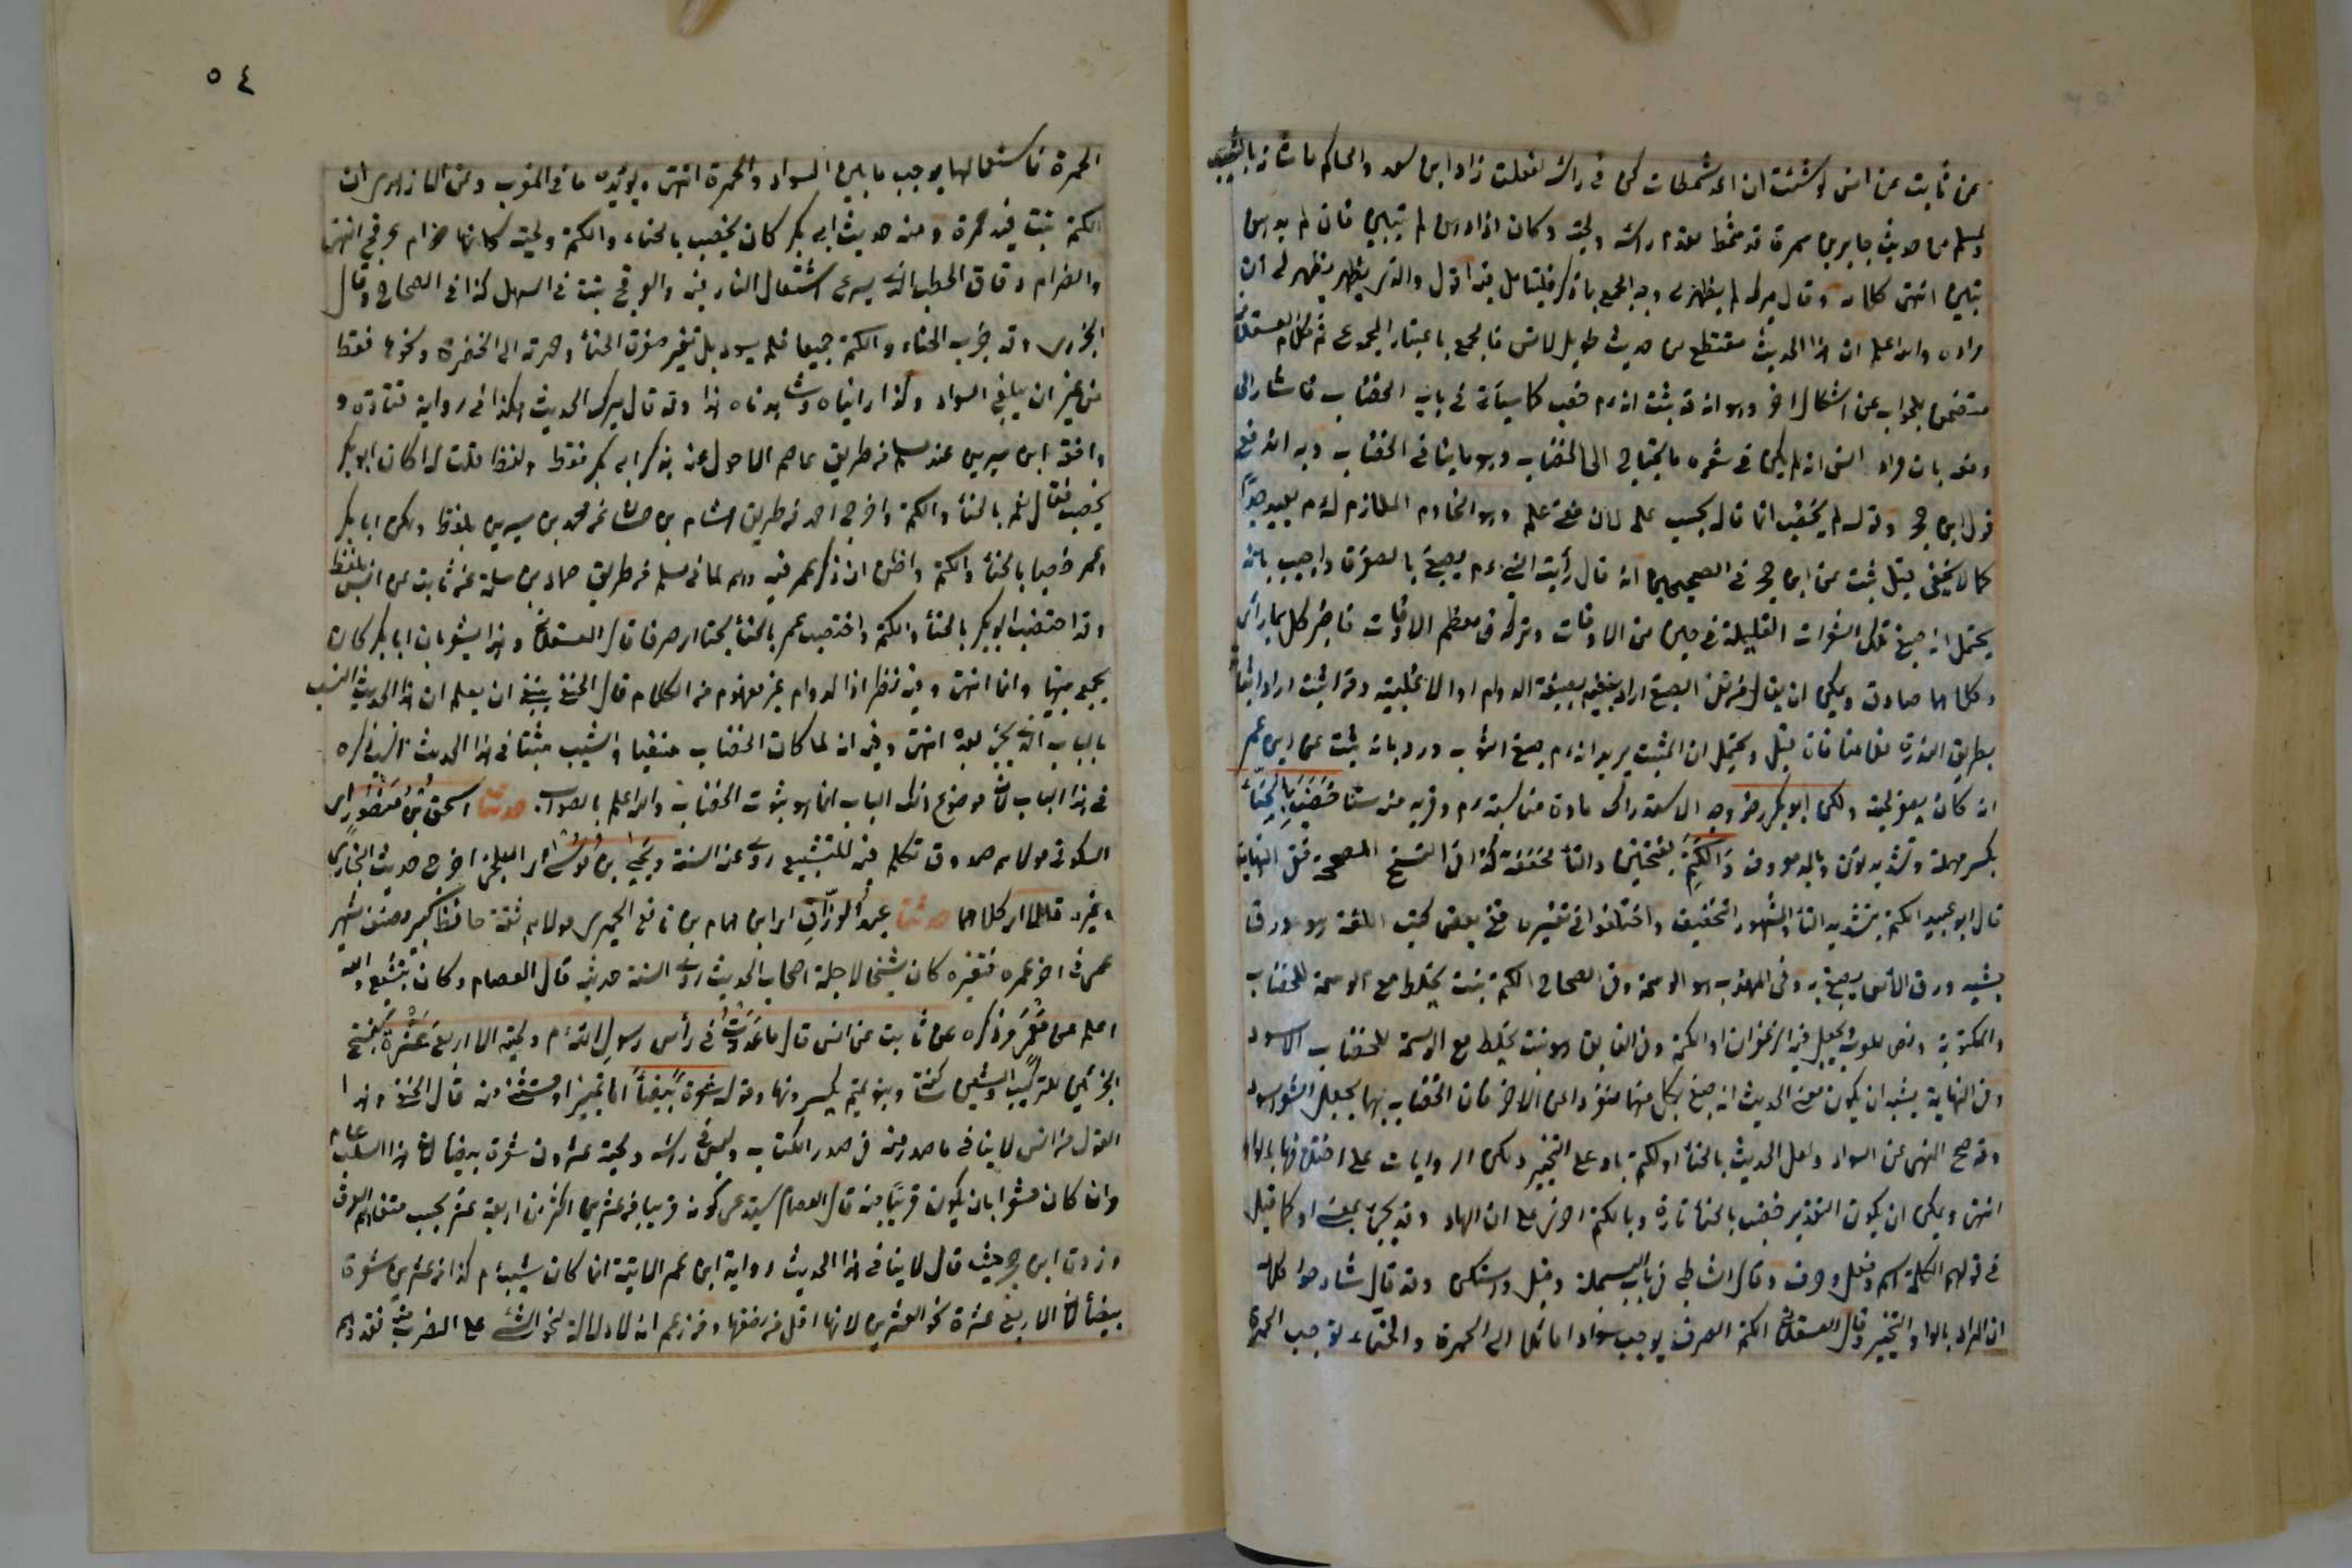 عن ثابت عن انس لو شئت ان اعد شمطات كن فى رأسه لفعلت زاد ابن سعد والحاكم ما شانه بالشيب
ولمسلم من حديث جابر بن سمرة قد شمط مقدم رأسه ولحيته وكان اذا دهن لم يتبين فان لم يدهن
تبين انتهى كلامه وقال ميرك لم يظهر لى وجه الجمع بما ذكر فليتأمل فيه اقول والذى يظهر يظهر لى ان
مراده والله اعلم ان هذا الحديث مقتطع من حديث طويل لانس فالجمع باعتبار المجموع ثم كلام العسقلانى
متضمن بالجواب عن اشكال اخر وهو انه قد ثبت انه م خضب كما سيأتى فى باب الخضاب فاشار الى
دفعه بان مراد انس انه لم يكن فى شعره ما يحتاج الى الخضاب وهو ما ينافى الخضاب وبه اندفع
قول ابن حجر وقوله لم يخضب انما قاله بحسب علمه لان نفى علمه وهو الخادم الملازم له م بعيد جدا
كما لا يخفى قيل ثبت عن ابن عمر فى الصحيحين انه قال رأيت النبى م يصبغ بالصفرة واجيب بانه
يحتمل انه صبغ تلك الشعرات القليلة فى حين من الاوقات وتركه فى معظم الاوقات فاخبر كل بما رأى
وكلاهما صادق ويمكن ان يقال من نفى الصبغ اراد بنفيه بصيغة الدوام او الاغلبية ومن اثبت اراد اثباته
بطريق الندرة فلا منافاة قيل ويحتمل ان المثبت يريد انه م صبغ الثوب ورد بانه ثبت عن ابن عمر
انه كان يصفر لحيته ولكن ابو بكر رض وجه الاستدراك مادة مناسبته م وقربه منه سنا خضب بالحناء
بكسر مهملة وتشديد نون وبالمد معروف والكتم بفتحتين والتاء مخففة كذا فى النسخ المصححة ففى النهاية
قال ابو عبيد الكتم بتشديد التاء والمشهور التخفيف واختلفوا فى تفسيره ففى بعض كتب اللغة هو ورق
يشبه ورق الآس يصبغ به وفى المهذب هو الوسمة وفى الصحاح الكتم نبت يخلط مع الوسمة للخضاب
والمكتوبة دهن للعرب يجعل فيه الزعفران او الكتم وفى الفايق هو نبت يخلط مع الوسمة للخضاب الاسود
وفى النهاية يشبه ان يكون معنى الحديث انه صبغ بكل منهما منفردا عن الاخر فان الخضاب بهما يجعل الشعر اسود
وقد صح النهى عن السواد ولعل الحديث بالحناء او الكتم باو على التخيير ولكن الروايات على اختلافها بالواو
انتهى ويمكن ان يكون التقدير خضب بالحناء تارة وبالكتم اخرى على ان الواو قد يجئ بمعنى او كما قيل
فى قولهم الكلمة اسم وفعل وحرف وقال الشاطبى فى باب البسملة وصل واسكتن وقد قال شارحوا كلامه
ان المراد بالواو التخيير وقال العسقلانى الكتم الصرف يوجب سوادا مائلا الى الحمرة والحناء توجب الحمرة
٥٤
الحمرة فاستعمالهما يوجب ما بين السواد والحمرة انتهى ويؤيده ما فى المغرب وعن الازهرى ان
الكتم نبت فيه حمرة ومنه حديث ابى بكر كان يخضب بالحناء والكتم ولحيته كانها ضرام عرفج انتهى
والضرام دقاق الحطب الذى يسرع اشتعال النار فيه والعرفج نبت فى السهل كذا فى الصحاح وقال
الجزرى وقد جرب الحناء والكتم جميعا فلم يسود بل تغير صفرة الحناء وحمرته الى الخضرة ونحوها فقط
من غير ان يبلغ السواد وكذا رأيناه وشاهدناه هذا وقد قال ميرك الحديث هكذا فى رواية قتادة و
وافق ابن سيرين عند مسلم من طريق عاصم الاحول عنه بذكر ابى بكر فقط ولفظه قلت له اكان ابو بكر
يخضب فقال نعم بالحناء والكتم واخرج احمد من طريق هشام بن حسان عن محمد بن سيرين بلفظ ولكن ابا بكر
وعمر خضبا بالحناء والكتم واظن ان ذكر عمر فيه وهم لما فى مسلم من طريق حماد بن سلمة عن ثابت عن انس بلفظ
وقد اختضب ابو بكر بالحناء والكتم واختضب عمر بالحناء بحتا اى صرفا قال العسقلانى وهذا يشعر بان ابا بكر كان
يجمع بينهما دائما انتهى وفيه نظر اذ الدوام غير مفهوم من الكلام قال الحنفى ينبغى ان يعلم ان هذا الحديث انسب
بالباب الذى يجئ بعده انتهى وفيه انه لما كان الخضاب منفيا والشيب مثبتا فى هذا الحديث ناسب ذكره
فى هذا الباب لان موضوع ذلك الباب انما هو ثبوت الخضاب والله اعلم بالصواب. حدثنا اسحق بن منصور اى
السكونى مولاهم صدوق تكلم فيه للتشيع روى عنه الستة ويحيى بن موسى اى البلخى اخرج حديثه البخارى
وغيره قالا اى كلاهما حدثنا عبد الرزاق اى ابن همام بن نافع الحميرى مولاهم ثقة حافظ كبير مصنف شهير
عمى فى اخر عمره فتغيره كان شيخا لاجلة اصحاب الحديث روى الستة حديثه قال العصام وكان يتشيع والله
اعلم عن معمر مر ذكره عن ثابت عن انس قال ما عددت فى رأس رسول الله م ولحيته الا اربع عشرة بفتح
الجزئين للتركيب والشين ساكنة وبنو تميم يكسرونها وقوله شعرة بيضاء اما تمييز او مستثنى منه قال الحنفى وهذا
القول من انس لا ينافى ما صدر منه فى صدر الكتاب وليس فى رأسه ولحيته عشرون شعرة بيضاء لان هذا السلب عام
وان كان مشعرا بان يكون قريبا منه قال العصام يستدعى كونه قريبا من عشرين اكثر من اربعة عشر بحسب متفاهم العرف
وزوق ابن حجر حيث قال لا ينافى هذا الحديث رواية ابن عمر الاتية انما كان شيبه م كذا من عشرين شعرة
بيضاء لان الاربع عشرة نحو العشرين لانها اقل من نصفها ومن زعم انه لا دلالة لنحو الشئ على القرب منه فقد وهم